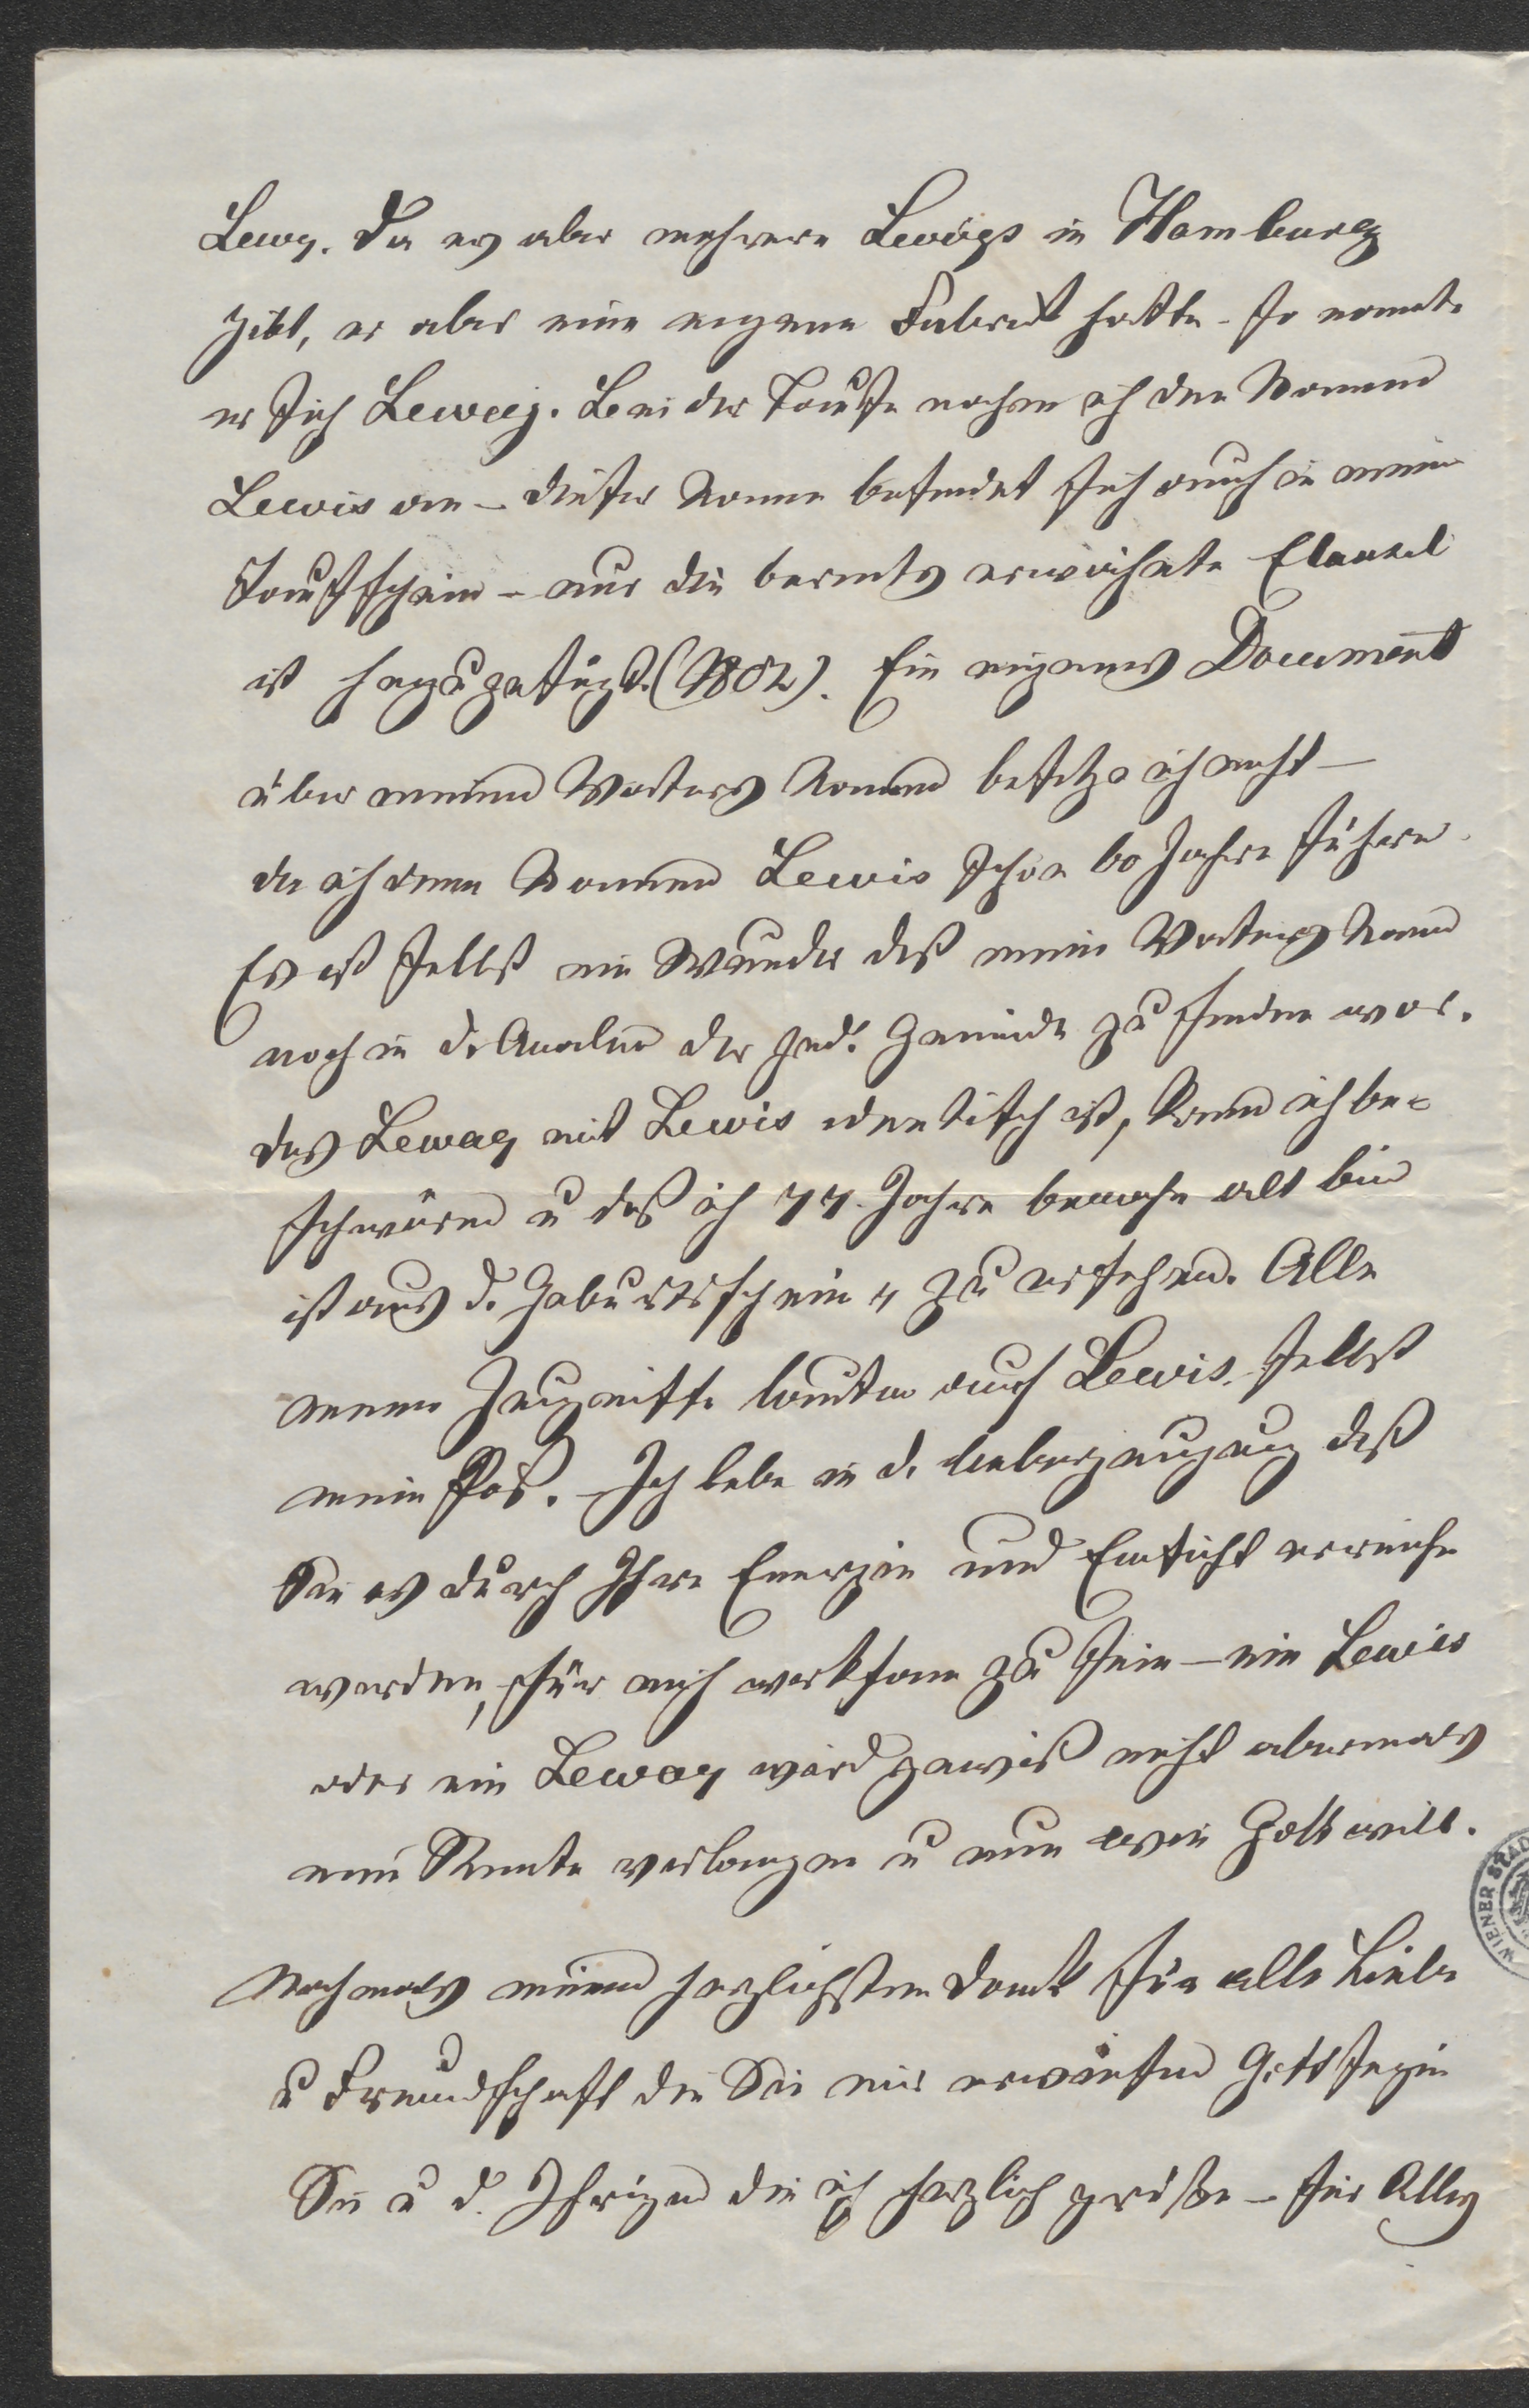 Lewy. Da es aber mehrere Lewys in Hamburg
gibt, er aber eine eigene Fabrik hatte – so nannte
er sich Leway. Bei der Taufe nahm ich den Namen
Lewis an – dieser Name befindet sich auch in meinem
Taufschein – nur die bereits erwähnte Clausel
ist hinzugefügt. (1802). Ein eigenes Document
über meines Vaters Namen besitze ich nicht –
da ich den Namen Lewis schon 60 Jahre führe.
Es ist selbst ein Wunder daß mein Vaters Name
noch in d. Analen der jüd. Gemeinde zu finden war.
das Leway mit Lewis identisch ist, kann ich be=
schwören u daß ich 77 Jahre beinahe alt bin
ist aus d. Geburtsschein zu ersehen. Alle
meine Zeugnisse lauten auch Lewis. selbst
mein Paß. – Ich lebe in d. Ueberzeugung daß
Sie es durch Ihre Energie und Einsicht erreichen
werden, für mich wirksam zu sein – ein Lewis
oder ein Leway wird gewiß nicht abermals
eine Rente verlangen u nun wie Gott will.
Nochmals meinen herzlichsten Dank für alle Liebe
u Freundschaft die Sie mir erwiesen Gott segne
Sie u d. Ihrigen die ich herzlich grüße – für Alles
WIENER STAD